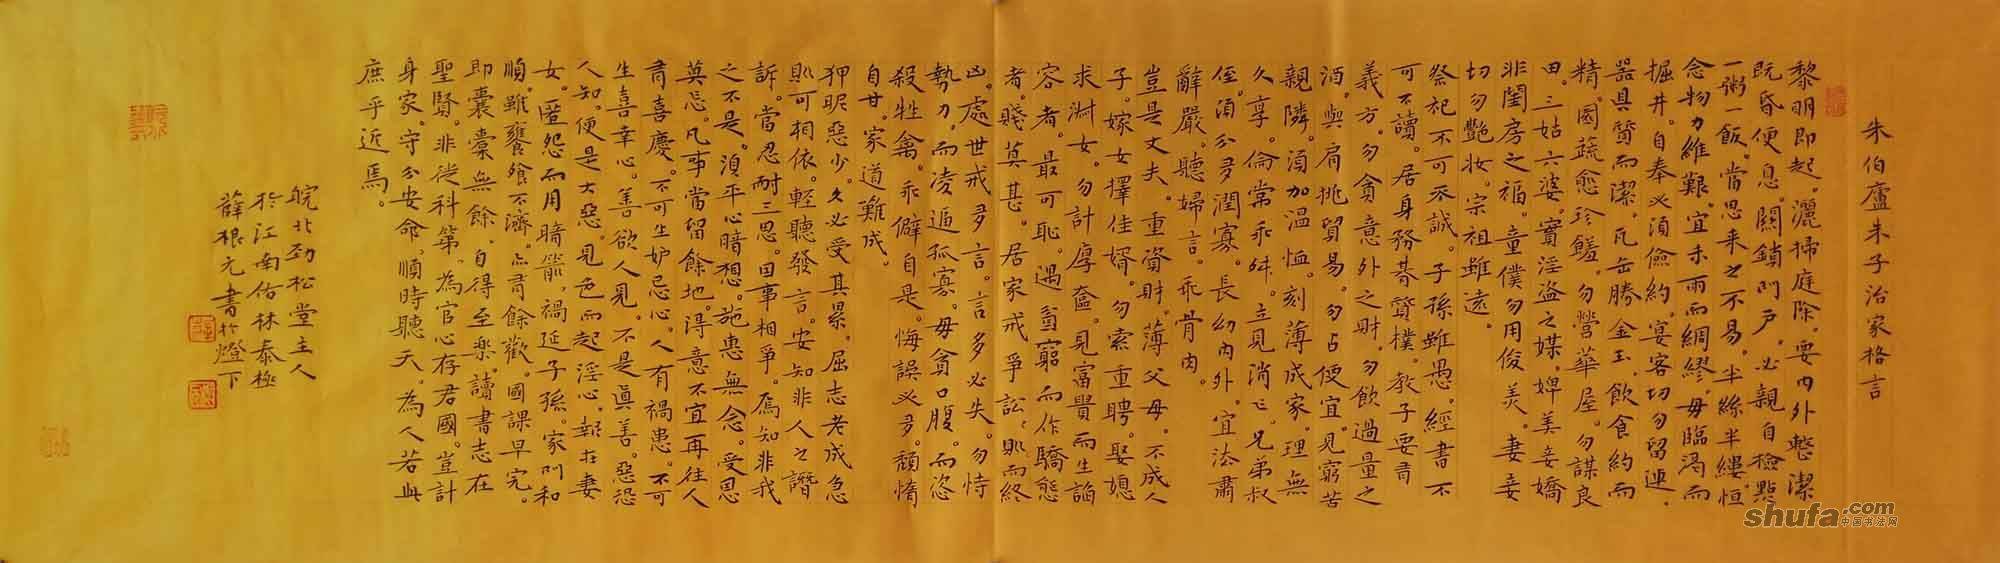 朱伯廬朱子治家格言
黎明即起。灑掃庭除。要内外整潔
既昏便息。關鎖門户。必親自檢點
一粥一飯。當思来之不易。半絲半縷。恒
念物力維艱。宜未雨而綢繆。毋臨渴而
掘井。自奉必須儉約。宴客切勿留連。
器具質而潔。瓦缶勝金玉。飲食約而
精。園蔬愈珍饈。勿營華屋。勿謀良
田。三姑六婆。實淫盗之媒。婢美妾嬌
非閨房之福。童僕勿用俊美。妻妾
切勿艷妝。宗祖雖遠。
祭祀不可不誠。子孫雖愚。經書不
可不讀。居身務其質樸。教子要有
義方。勿貪意外之財。勿飲過量之
酒。與肩挑貿易。勿占便宜。見窮苦
親隣。須加温恤。刻薄成家。理無
久享。倫常乖舛。立見消亡。兄弟叔
侄。須分多潤寡。長幼内外。宜法肅
辭嚴。聽婦言。乖骨肉。
豈是丈夫。重資財。薄父母。不成人
子。嫁女擇佳婿。勿索重聘。娶媳
求淑女。勿計厚奩。見富貴而生諂
容者。最可恥。遇貧窮而作驕態
者。賤莫甚。居家戒爭訟。訟則終
凶。處世戒多言。言多必失。勿恃
勢力。而凌逼孤寡。毋貪口腹。而恣
殺牲禽。乖僻自是。悔誤必多。頹惰
自甘。家道難成。
狎昵惡少。久必受其累。屈志老成。急
則可相依。輕聽發言。安知非人之譖
訴。當忍耐三思。因事相爭。焉知非我
之不是。須平心暗想。施惠無念。受恩
莫忘。凡事當留餘地。得意不宜再往。人
有喜慶。不可生妒忌心。人有禍患。不可
生喜幸心。善欲人見。不是真善。惡恐
人知。便是大惡。見色而起淫心。報在妻
女。匿怨而用暗箭。禍延子孫。家門和
順。雖饔飧不濟。亦有餘歡。國課早完。
即囊橐無餘。自得至樂。讀書志在
聖賢。非徒科第。為官心存君國。豈計
身家。守分安命。順時聽天。為人若與
庶乎近焉。
皖北劲松堂主人
於江南佑林泰極
薛根元書於燈下
shufa.com
中国书法网